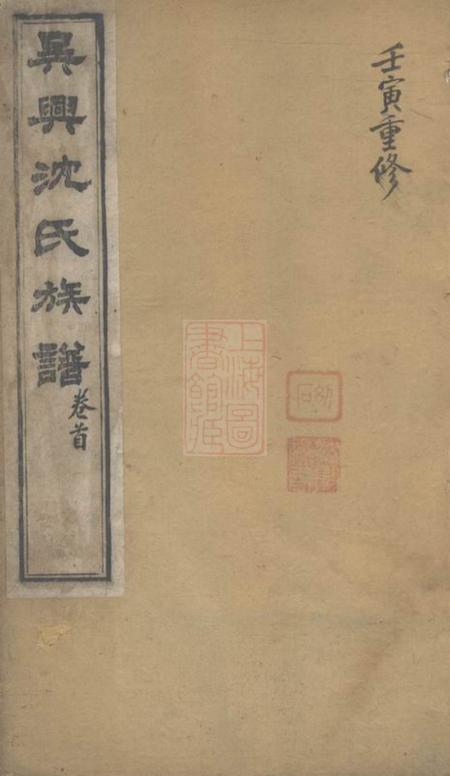 壬寅重修
吳興沈氏族譜
卷首
上海圖
書館藏